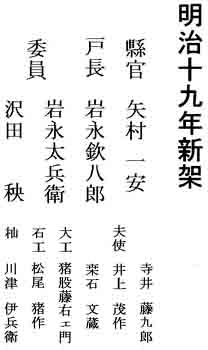 明治十九年新架
縣官 矢村一安
戸長 岩永欽八郎
委員 岩永太兵衛
沢田 秧
寺井 藤九郎
夫使 井上 茂作
栗石 文蔵
大工 猪股藤右ェ門
石工 松尾 猪作
杣 川津 伊兵衛